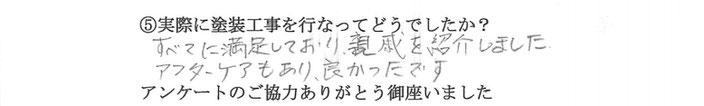 ⑤実際に塗装工事を行なってどうでしたか？
すべてに満足しており、親戚を紹介しました.
アフターケアもあり、良かったです
アンケートのご協力ありがとう御座いました